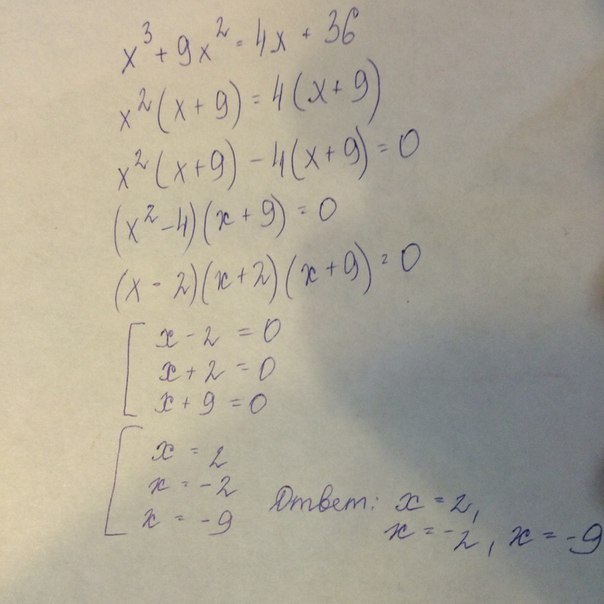 x³ + 9x² = 4x + 36
x²(x+9) = 4(x+9)
x²(x+9) - 4(x+9) = 0
(x²-4)(x+9) = 0
(x-2)(x+2)(x+9) = 0
[ x - 2 = 0
x + 2 = 0
x + 9 = 0
[ x = 2
x = -2
x = -9
Ответ: x = 2,
x = -2, x = -9